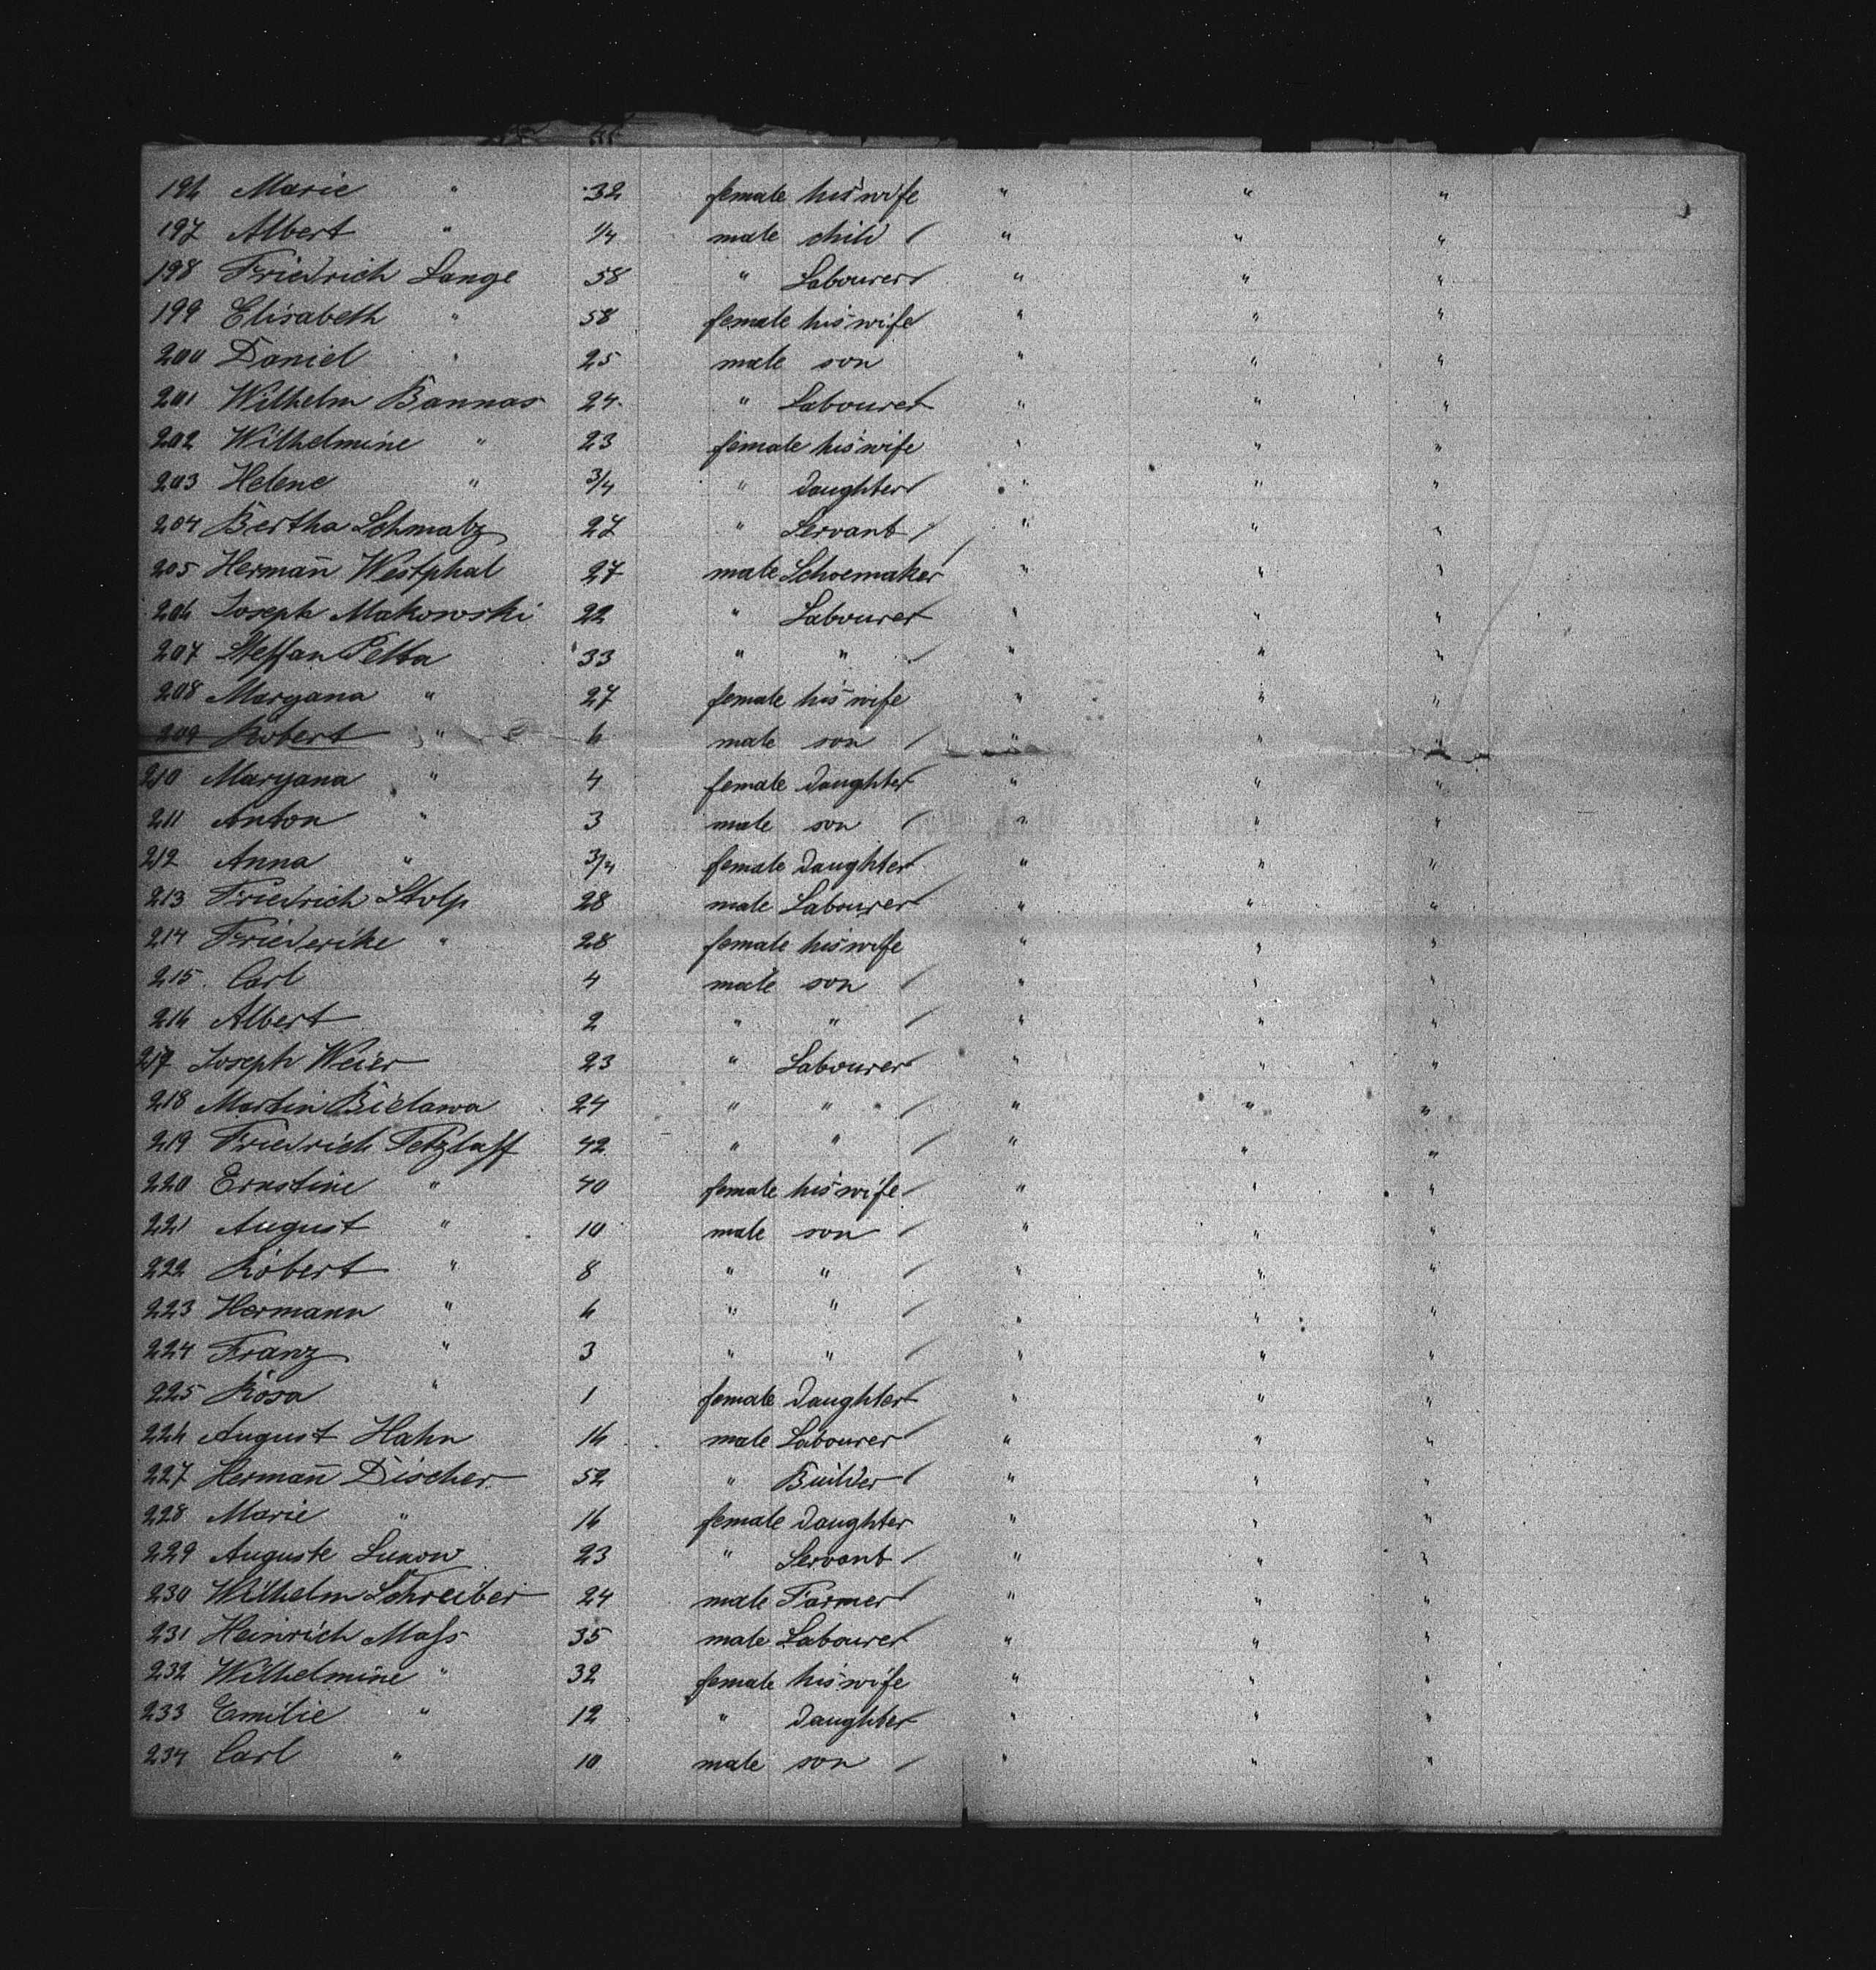 196 Marie " 32 female his wife " " "
197 Albert " 1/4 male child / " " "
198 Friedrich Lange 58 " Labourer / " " "
199 Elisabeth " 58 female his wife " " "
200 Daniel " 25 male son " " "
201 Wilhelm Bannas 24 " Labourer / " " "
202 Wilhelmine " 23 female his wife " " "
203 Helene " 3/4 " daughter / " " "
204 Bertha Schmalz 27 " Servant / " " "
205 Herman̄ Westphal 27 male Schoemaker / " " "
206 Joseph Makowski 22 " Labourer / " " "
207 Steffan Pelka 33 " " / " " "
208 Maryana " 27 female his wife " " "
209 Robert " 6 male son / " " "
210 Maryana " 4 female daughter / " " "
211 Anton " 3 male son / " " "
212 Anna " 3/4 female daughter / " " "
213 Friedrich Stolp 28 male Labourer / " " "
214 Friederike " 28 female his wife " " "
215 Carl 4 male son / " " "
216 Albert 2 " " / " " "
217 Joseph Weier 23 " Labourer / " " "
218 Martin Bielawa 24 " " / " " "
219 Friedrich Tetzlaff 42 " " / " " "
220 Ernstine " 40 female his wife / " " "
221 August " 10 male son / " " "
222 Robert " 8 " " / " " "
223 Hermann " 6 " " / " " "
224 Franz " 3 " " / " " "
225 Rosa " 1 female daughter / " " "
226 August Hahn 16 male Labourer / " " "
227 Herman̄ Discher 52 " Builder / " " "
228 Marie " 16 female daughter " " "
229 Auguste Lukow 23 " Servant / " " "
230 Wilhelm Schreiber 24 male Farmer / " " "
231 Heinrich Mass 35 male Labourer / " " "
232 Wilhelmine " 32 female his wife " " "
233 Emilie " 12 " daughter / " " "
234 Carl " 10 male son / " " "